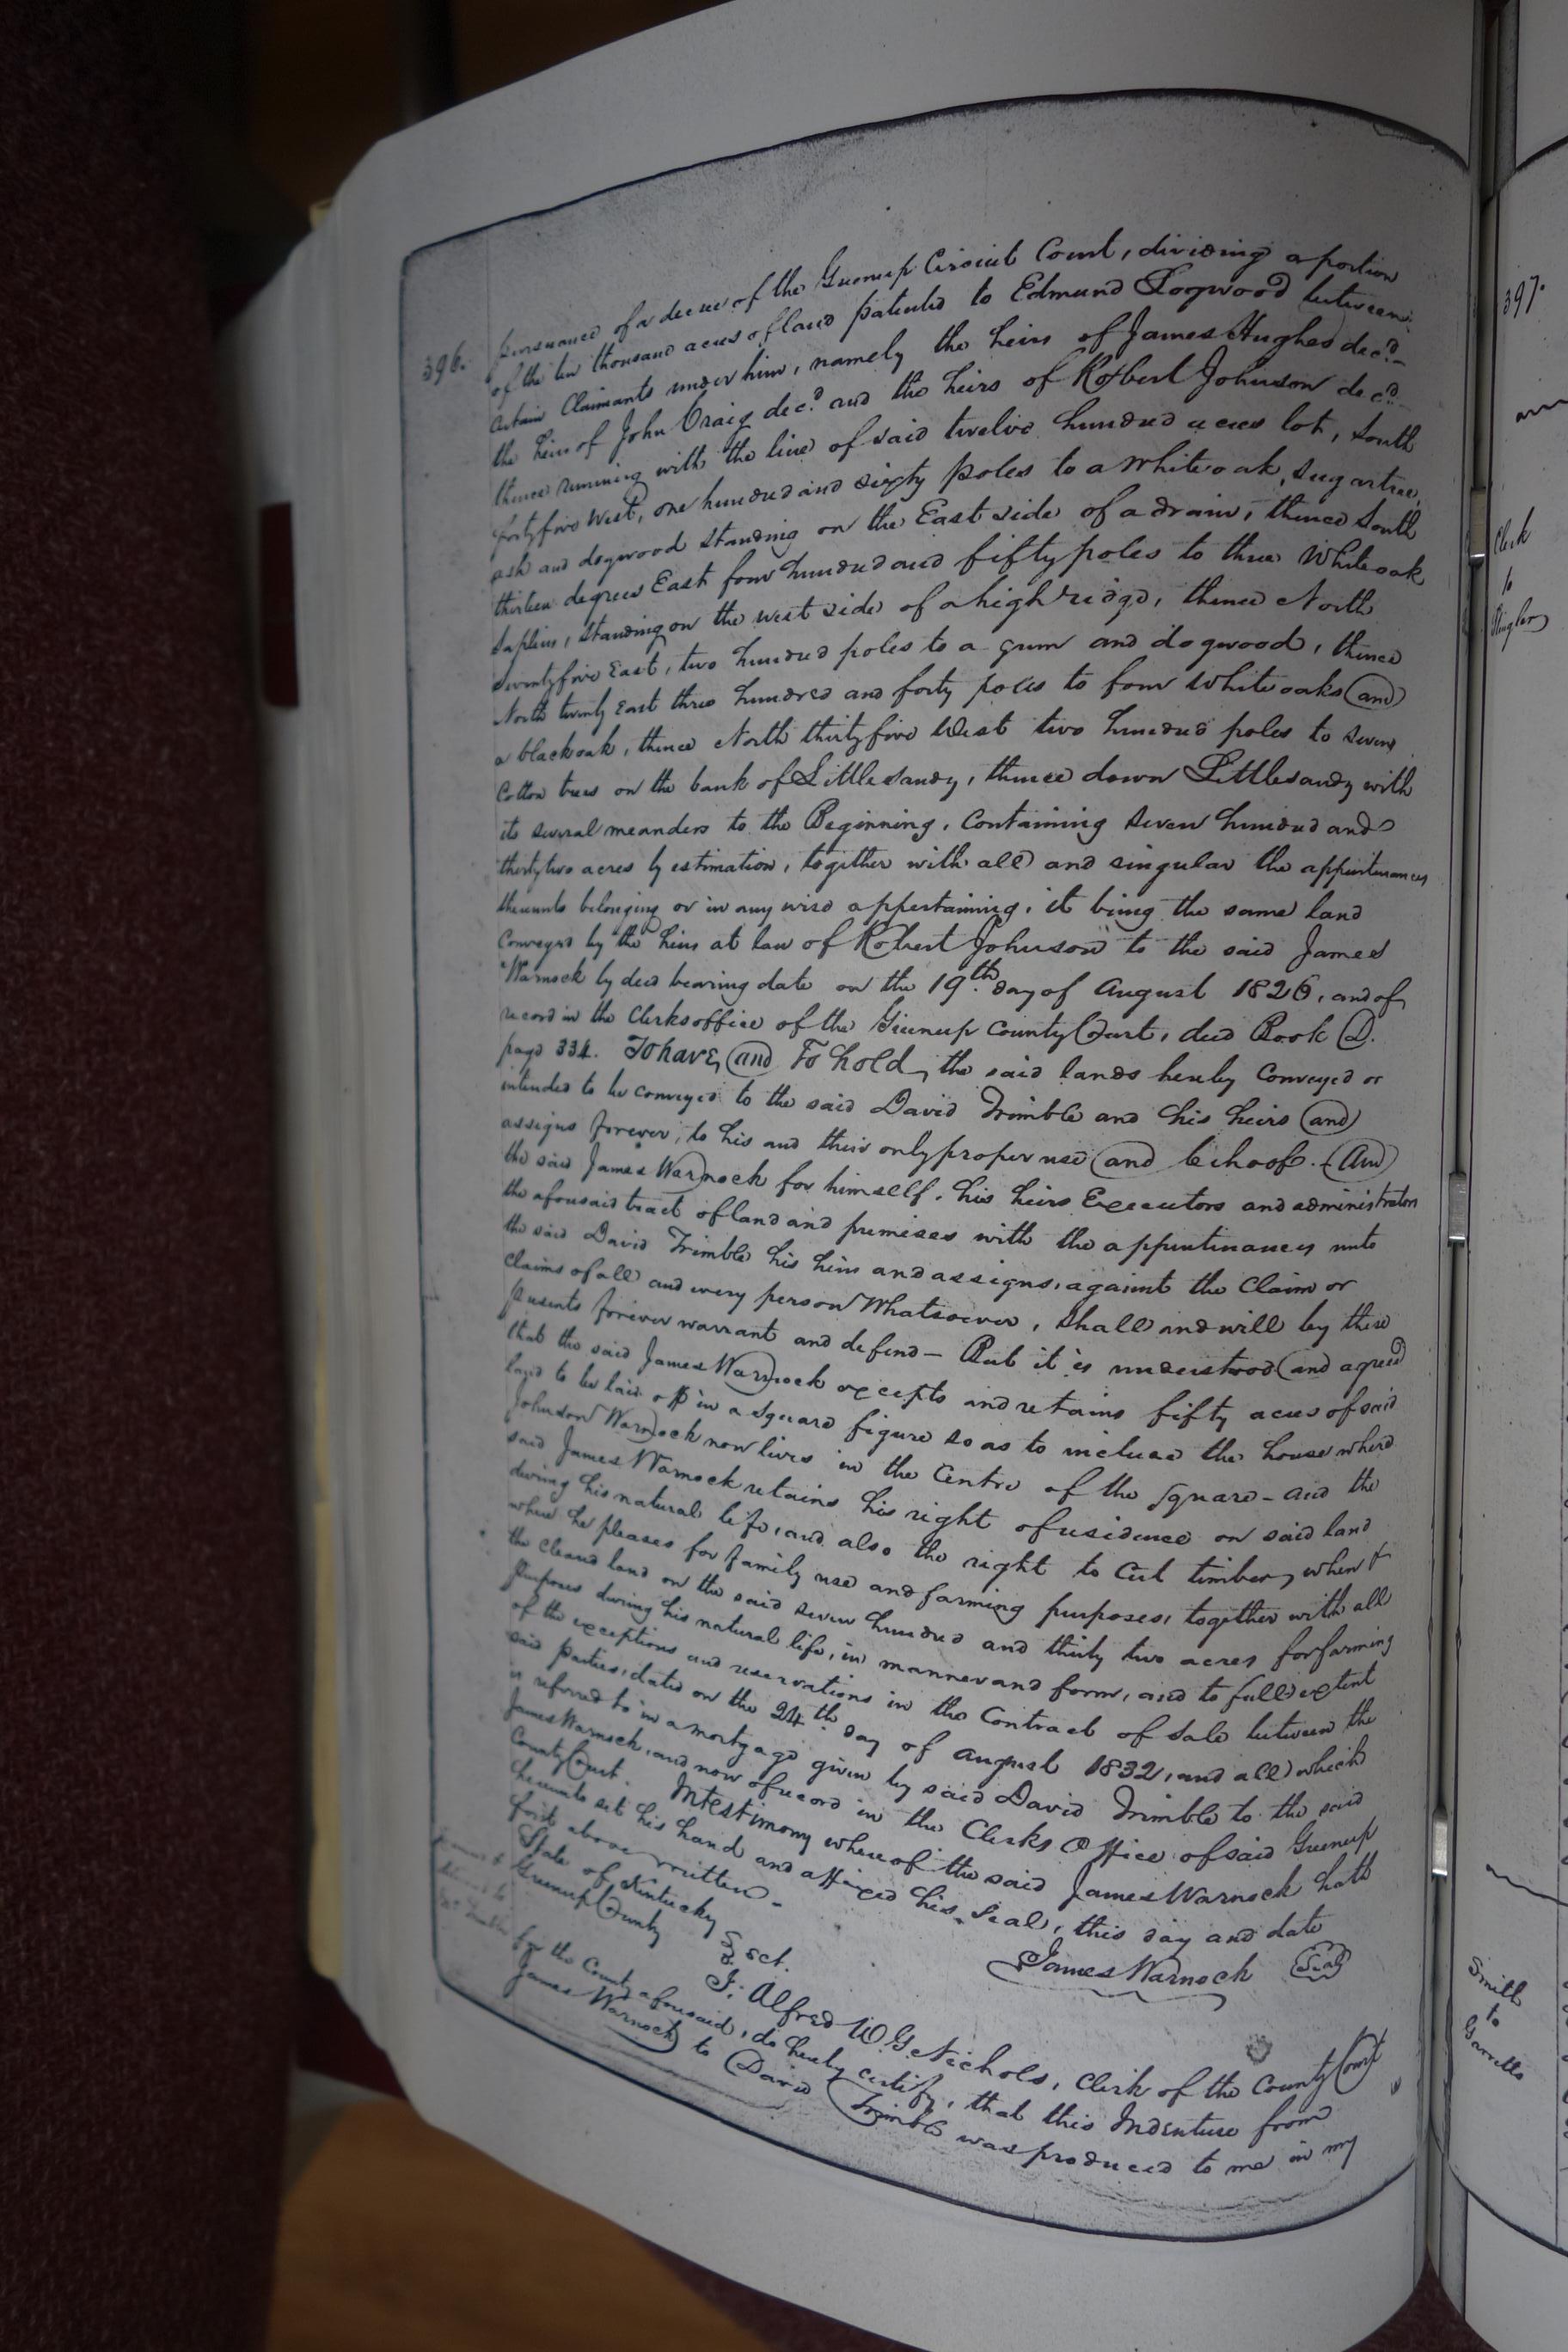 396.
pursuance of a decree of the Greenup Circuit Court, dividing a portion
of the ten thousand acres of land patented to Edmund Logwood between
certain Claimants under him, namely the heirs of James Hughes decd.
the heirs of John Craig decd. and the heirs of Robert Johnson decd.
thence running with the line of said twelve hundred acres lot, South
forty five West, one hundred and sixty poles to a white oak, sugartree,
ash and dogwood standing on the East side of a drain, thence South
thirteen degrees East four hundred and fifty poles to three White oak
saplins, standing on the west side of a high ridge, thence North
seventy five East, two hundred poles to a gum and dogwood, thence
North twenty East three hundred and forty poles to four White oaks and
a black oak, thence North thirty five West two hundred poles to seven
Cotton trees on the bank of Little sandy, thence down Little sandy with
its several meanders to the Beginning, Containing seven hundred and
thirty two acres by estimation, together with all and singular the appurtenances
thereunto belonging or in any wise appertaining, it being the same land
Conveyed by the heirs at law of Robert Johnson to the said James
Warnock by deed bearing date on the 19th. day of August 1826, and of
record in the Clerks office of the Greenup County Court, deed Book D.
page 334. To have and To hold, the said lands hereby Conveyed or
intended to be conveyed to the said David Trimble and his heirs and
assigns forever, to his and their only proper use and behoof. And
the said James Warnock for himself, his heirs Executors and administrators
the aforesaid tract of land and premises with the appurtinances unto
the said David Trimble his heirs and assigns, against the Claim or
Claims of all and every person Whatsoever, shall and will by these
presents forever warrant and defend – But it is understood and agreed
that the said James Warnock excepts and retains fifty acres of said
land to be laid off in a square figure so as to include the house where
Johnson Warnock now lives in the Centre of the square – and the
said James Warnock retains his right of residence on said land
during his natural life, and also the right to Cut timber, when &
where he pleases for family use and farming purposes, together with all
the cleared land on the said seven hundred and thirty two acres for farming
purposes during his natural life, in manner and form, and to full extent
of the exceptions and reservations in the Contract of Sale between the
said parties, dated on the 24th. day of August 1832, and all which
is referred to in a mortgage given by said David Trimble to the said
James Warnock, and now of record in the Clerks Office of said Greenup
County Court. In testimony whereof the said James Warnock hath
hereunto set his hand and affixed his seal, this day and date
first above written –
James Warnock Seal
State of Kentucky
Greenup County sct.
I, Alfred W. G. Nichols, Clerk of the County Court
for the County aforesaid, do hereby certify, that this Indenture from
James Warnock to David Trimble was produced to me in my
397.
Clerk
to
Smith
to